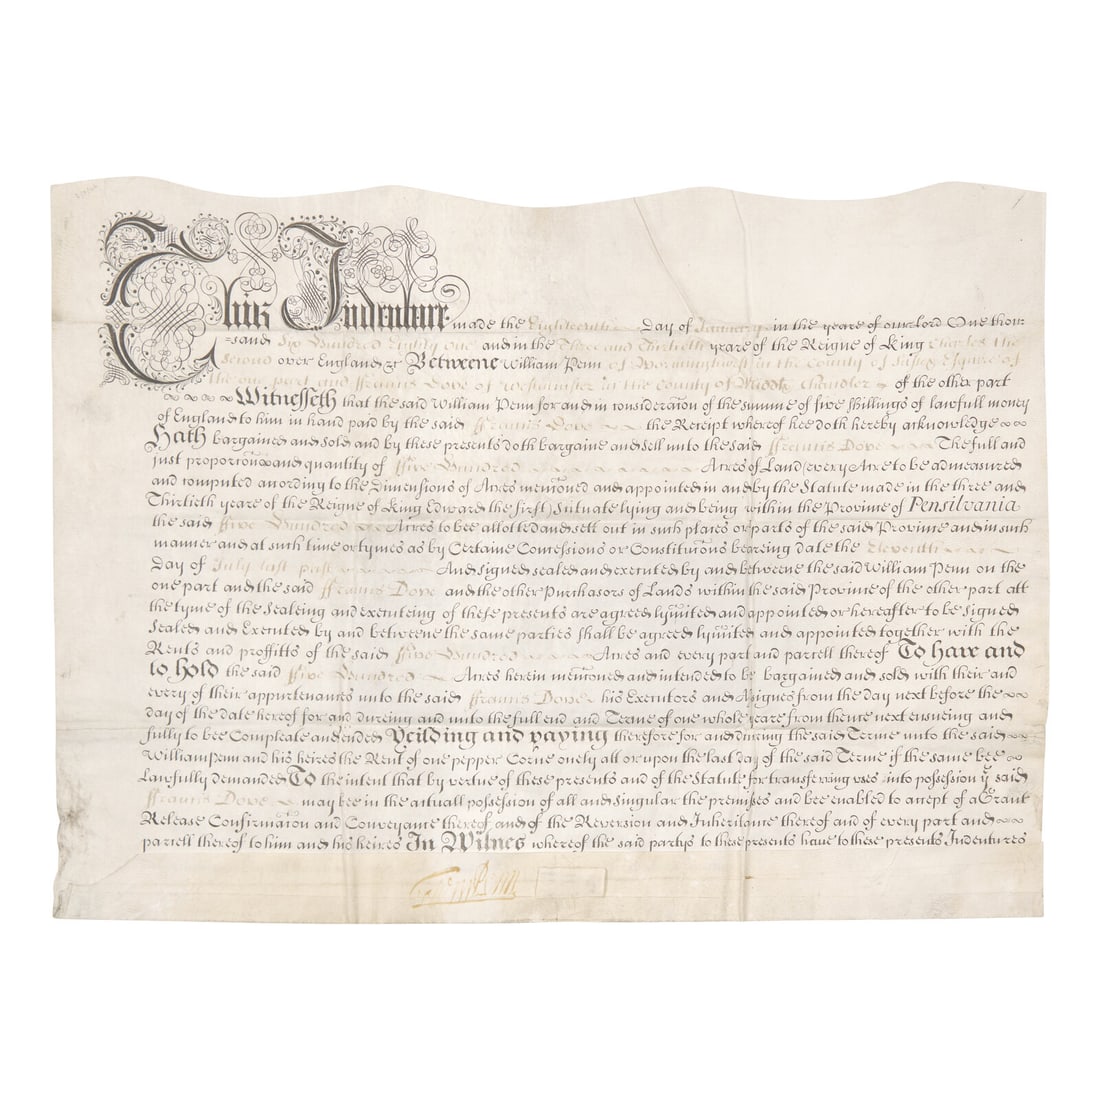 This Indenture made the Eighteenth Day of January in the yeare of our Lord One thou-
sand Six Hundred Eighty One and in the Three and Thirtieth yeare of the Reigne of King Charles the
Second over England &c Betweene William Penn of Worminghurst in the County of Sussex Esquire of
the one part and ffrancis Dove of Westminster in the County of Middx Chandler of the other part
Witnesseth that the said William Penn for and in consideracon of the summe of five shillings of lawfull money
of England to him in hand paid by the said ffrancis Dove the Receipt whereof hee doth hereby acknowledge
Hath bargained and sold and by these presents doth bargaine and sell unto the said ffrancis Dove The full and
just proporcon and quantity of ffive Hundred Acres of Land (every Acre to be admeasured
and computed according to the Dimensions of Acres menconed and appointed in and by the Statute made in the three and
Thirtieth yeare of the Reigne of King Edward the first) Situate lying and being within the Province of Pensilvania
the said ffive Hundred Acres to bee allotted and sett out in such places or parts of the said Province and in such
manner and at such time or tymes as by Certaine Concessions or Constitucons bearing date the Eleventh
day of July last past And signed sealed and executed by and betweene the said William Penn on the
one part and the said ffrancis Dove and the other Purchasors of Lands within the said Province of the other part att
the tyme of the Sealeing and executeing of these presents are agreed lymitted and appointed or hereafter to be Signed
Sealed and Executed by and betweene the same parties shall be agreed lymitted and appointed together with the
Rents and proffitts of the said ffive Hundred Acres and every part and parcell thereof To have and
to hold the said ffive Hundred Acres herein menconed and intended to be bargained and sold with their and
every of their appurtenances unto the said ffrancis Dove his Executors and Assignes from the day next before the
day of the date hereof for and dureing and unto the full end and Terme of one whole yeare from thence next ensueing and
fully to bee Compleate and ended Yeilding and paying therefore for and during the said Terme unto the said
William Penn and his heires the Rent of one pepper Corne onely all or upon the last day of the said Terme if the same bee
Lawfully demanded To the intent that by vertue of these presents and of the Statute for transferring uses into possession ye said
ffrancis Dove may bee in the actuall possession of all and singular the premisses and bee enabled to accept of a Grant
Release Confirmacon and Conveyance thereof and of the Reversion and Inheritance thereof and of every part and
parcell thereof to him and his heires In Witnes whereof the said partys to these presents have to these presents Indentures
Wm Penn